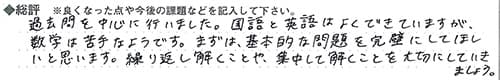 ◆総評 ※良くなった点や今後の課題などを記入して下さい。
過去問を中心に行いました。国語と英語はよくできていますが、
数学は苦手なようです。まずは、基本的な問題を完璧にしてほし
いと思います。繰り返し解くことや、集中して解くことを大切にしていき
ましょう。